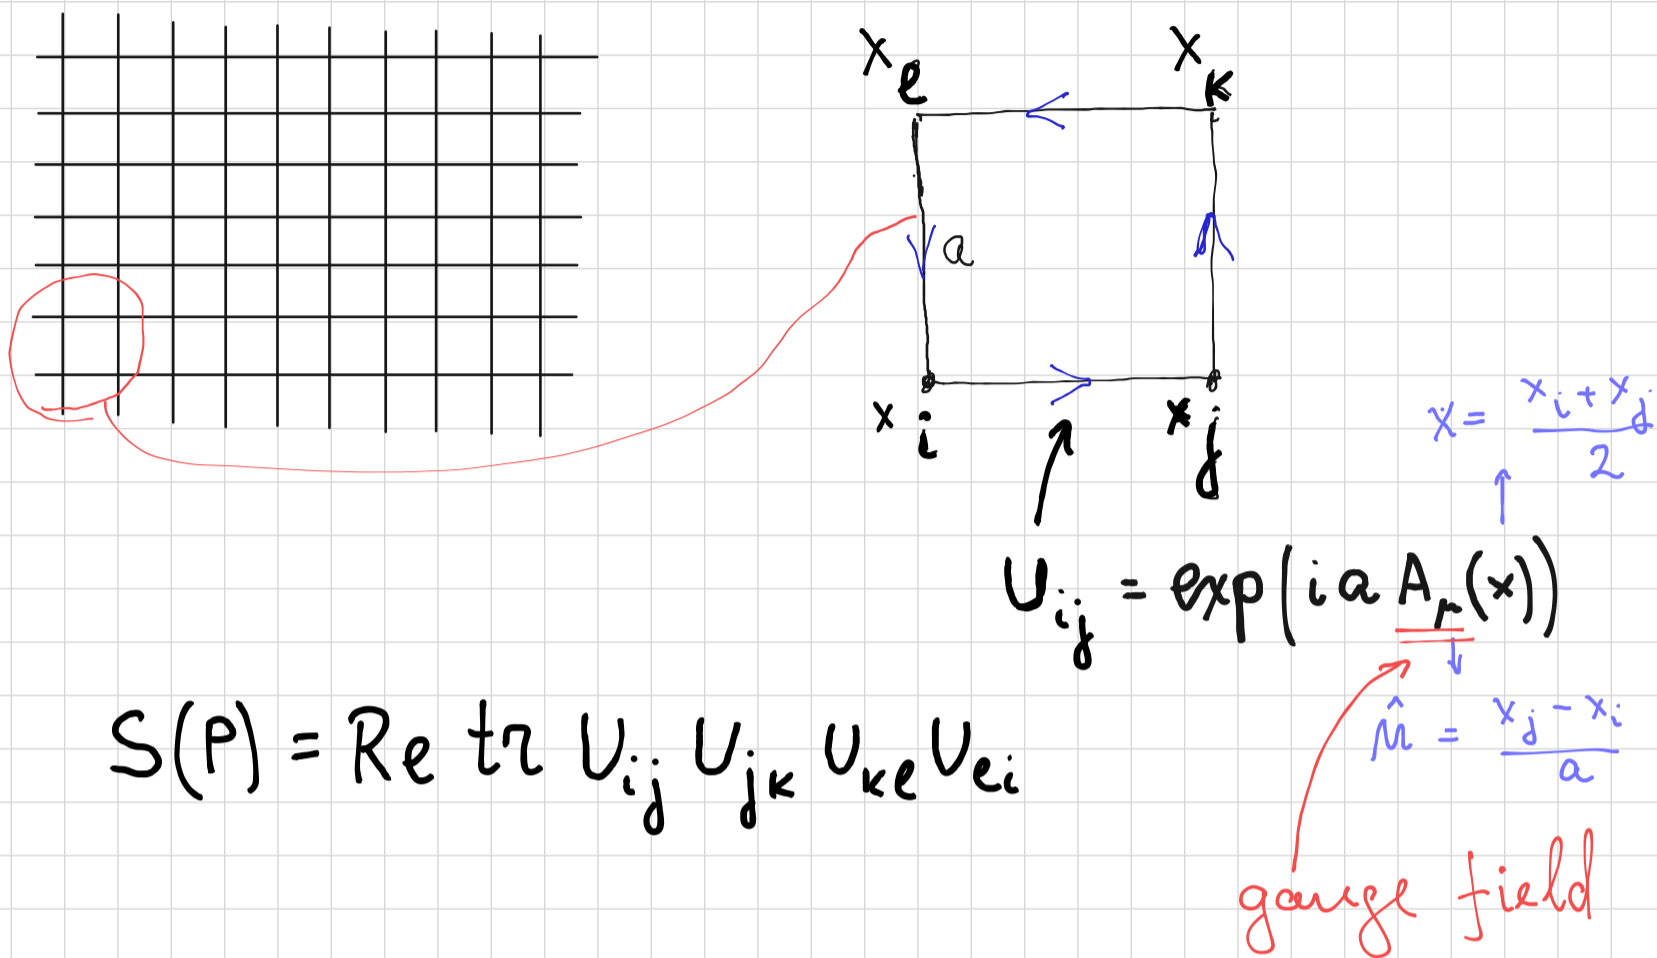 x_l x_k
a
x_i x_j
x = (x_i + x_j)/2
U_ij = exp(i a A_μ(x))
μ̂ = (x_j - x_i)/a
S(P) = Re tr U_ij U_jk U_kl U_li
gauge field